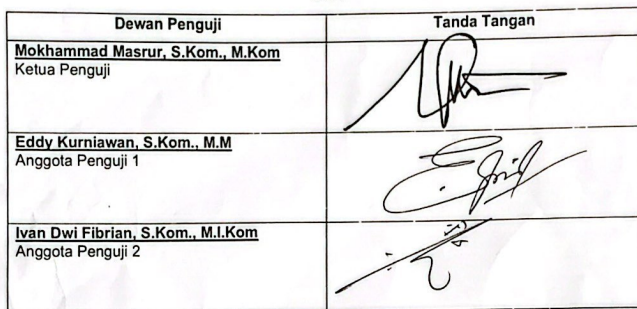 Dewan Penguji
Tanda Tangan
Mokhammad Masrur, S.Kom., M.Kom
Ketua Penguji
Eddy Kurniawan, S.Kom., M.M
Anggota Penguji 1
Ivan Dwi Fibrian, S.Kom., M.I.Kom
Anggota Penguji 2